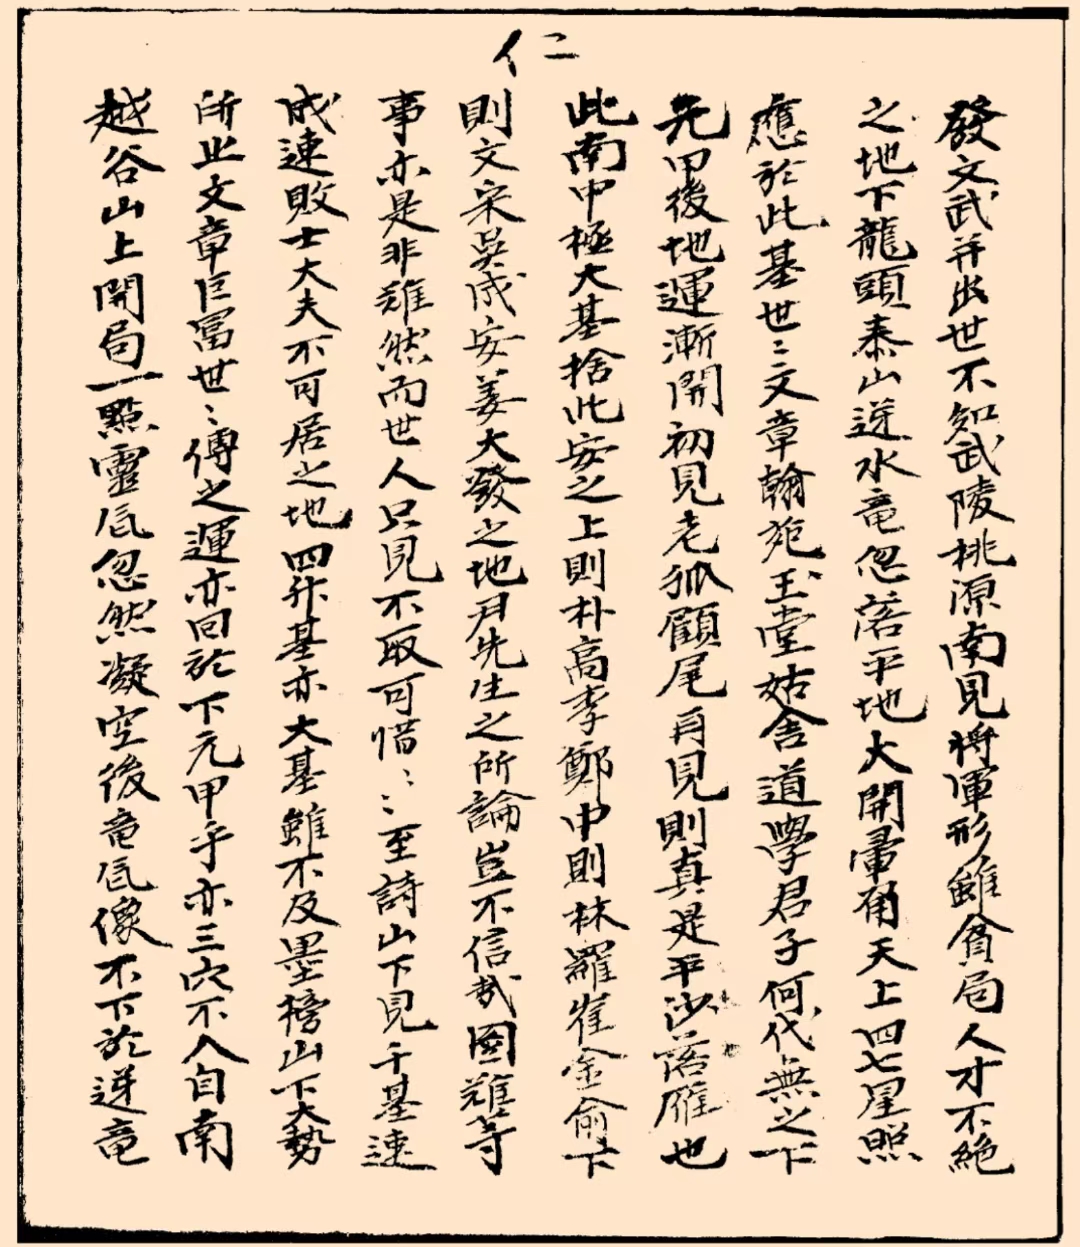 仁
發文武并出世不知武陵桃源南見將軍形雖貧局人才不絕
之地下龍頭泰山逆水竜忽落平地大開帚角天上四七星照
應於此基世〻文章翰苑玉堂姑舍道學君子何代無之下
先甲後地運漸開初見老狐顧尾再見則真是平沙落雁也
此南中極大基捨此安之上則朴高李鄭中則林羅崔金俞下
則文宋吳成安姜大發之地尹先生之所論豈不信哉圖難等
事亦是非難然而世人只見不取可惜〻〻至詩山下見千基速
成速敗士大夫不可居之地四升基亦大基雖不及墨榜山下大勢
所止文章巨富世〻傳之運亦回於下元甲乎亦三穴不入自南
越谷山上開局一點靈氣忽然凝空後竜氣像不下於逆竜